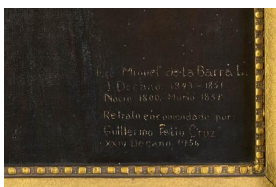 Miguel de la Barra L.
I Decano 1843-1851
Nació 1800. Murió 1851
Retrato encomendado por:
Guillermo Feliú Cruz
XXIV Decano 1956